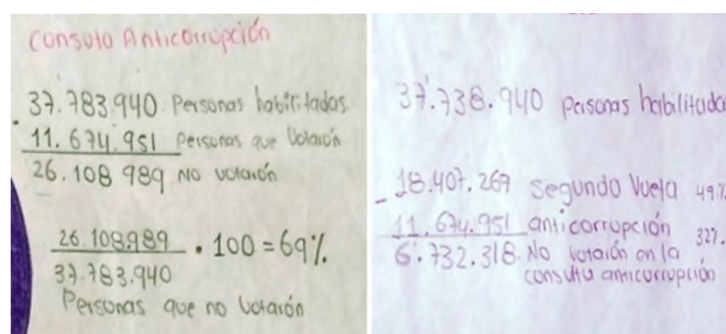 Consulta Anticorrupción
37.783.940 Personas habilitadas
- 11.674.951 Personas que Votarón
26.108 989 No votarón
26.108989 · 100 = 69%
37.783.940
Personas que no Votarón
37.738.940 personas habilitada
- 18.407.269 Segundo Vuelta 49%
11.674.951 anticorrupción 32%.
6.732.318 No votarón en la
consulta anticorrupción